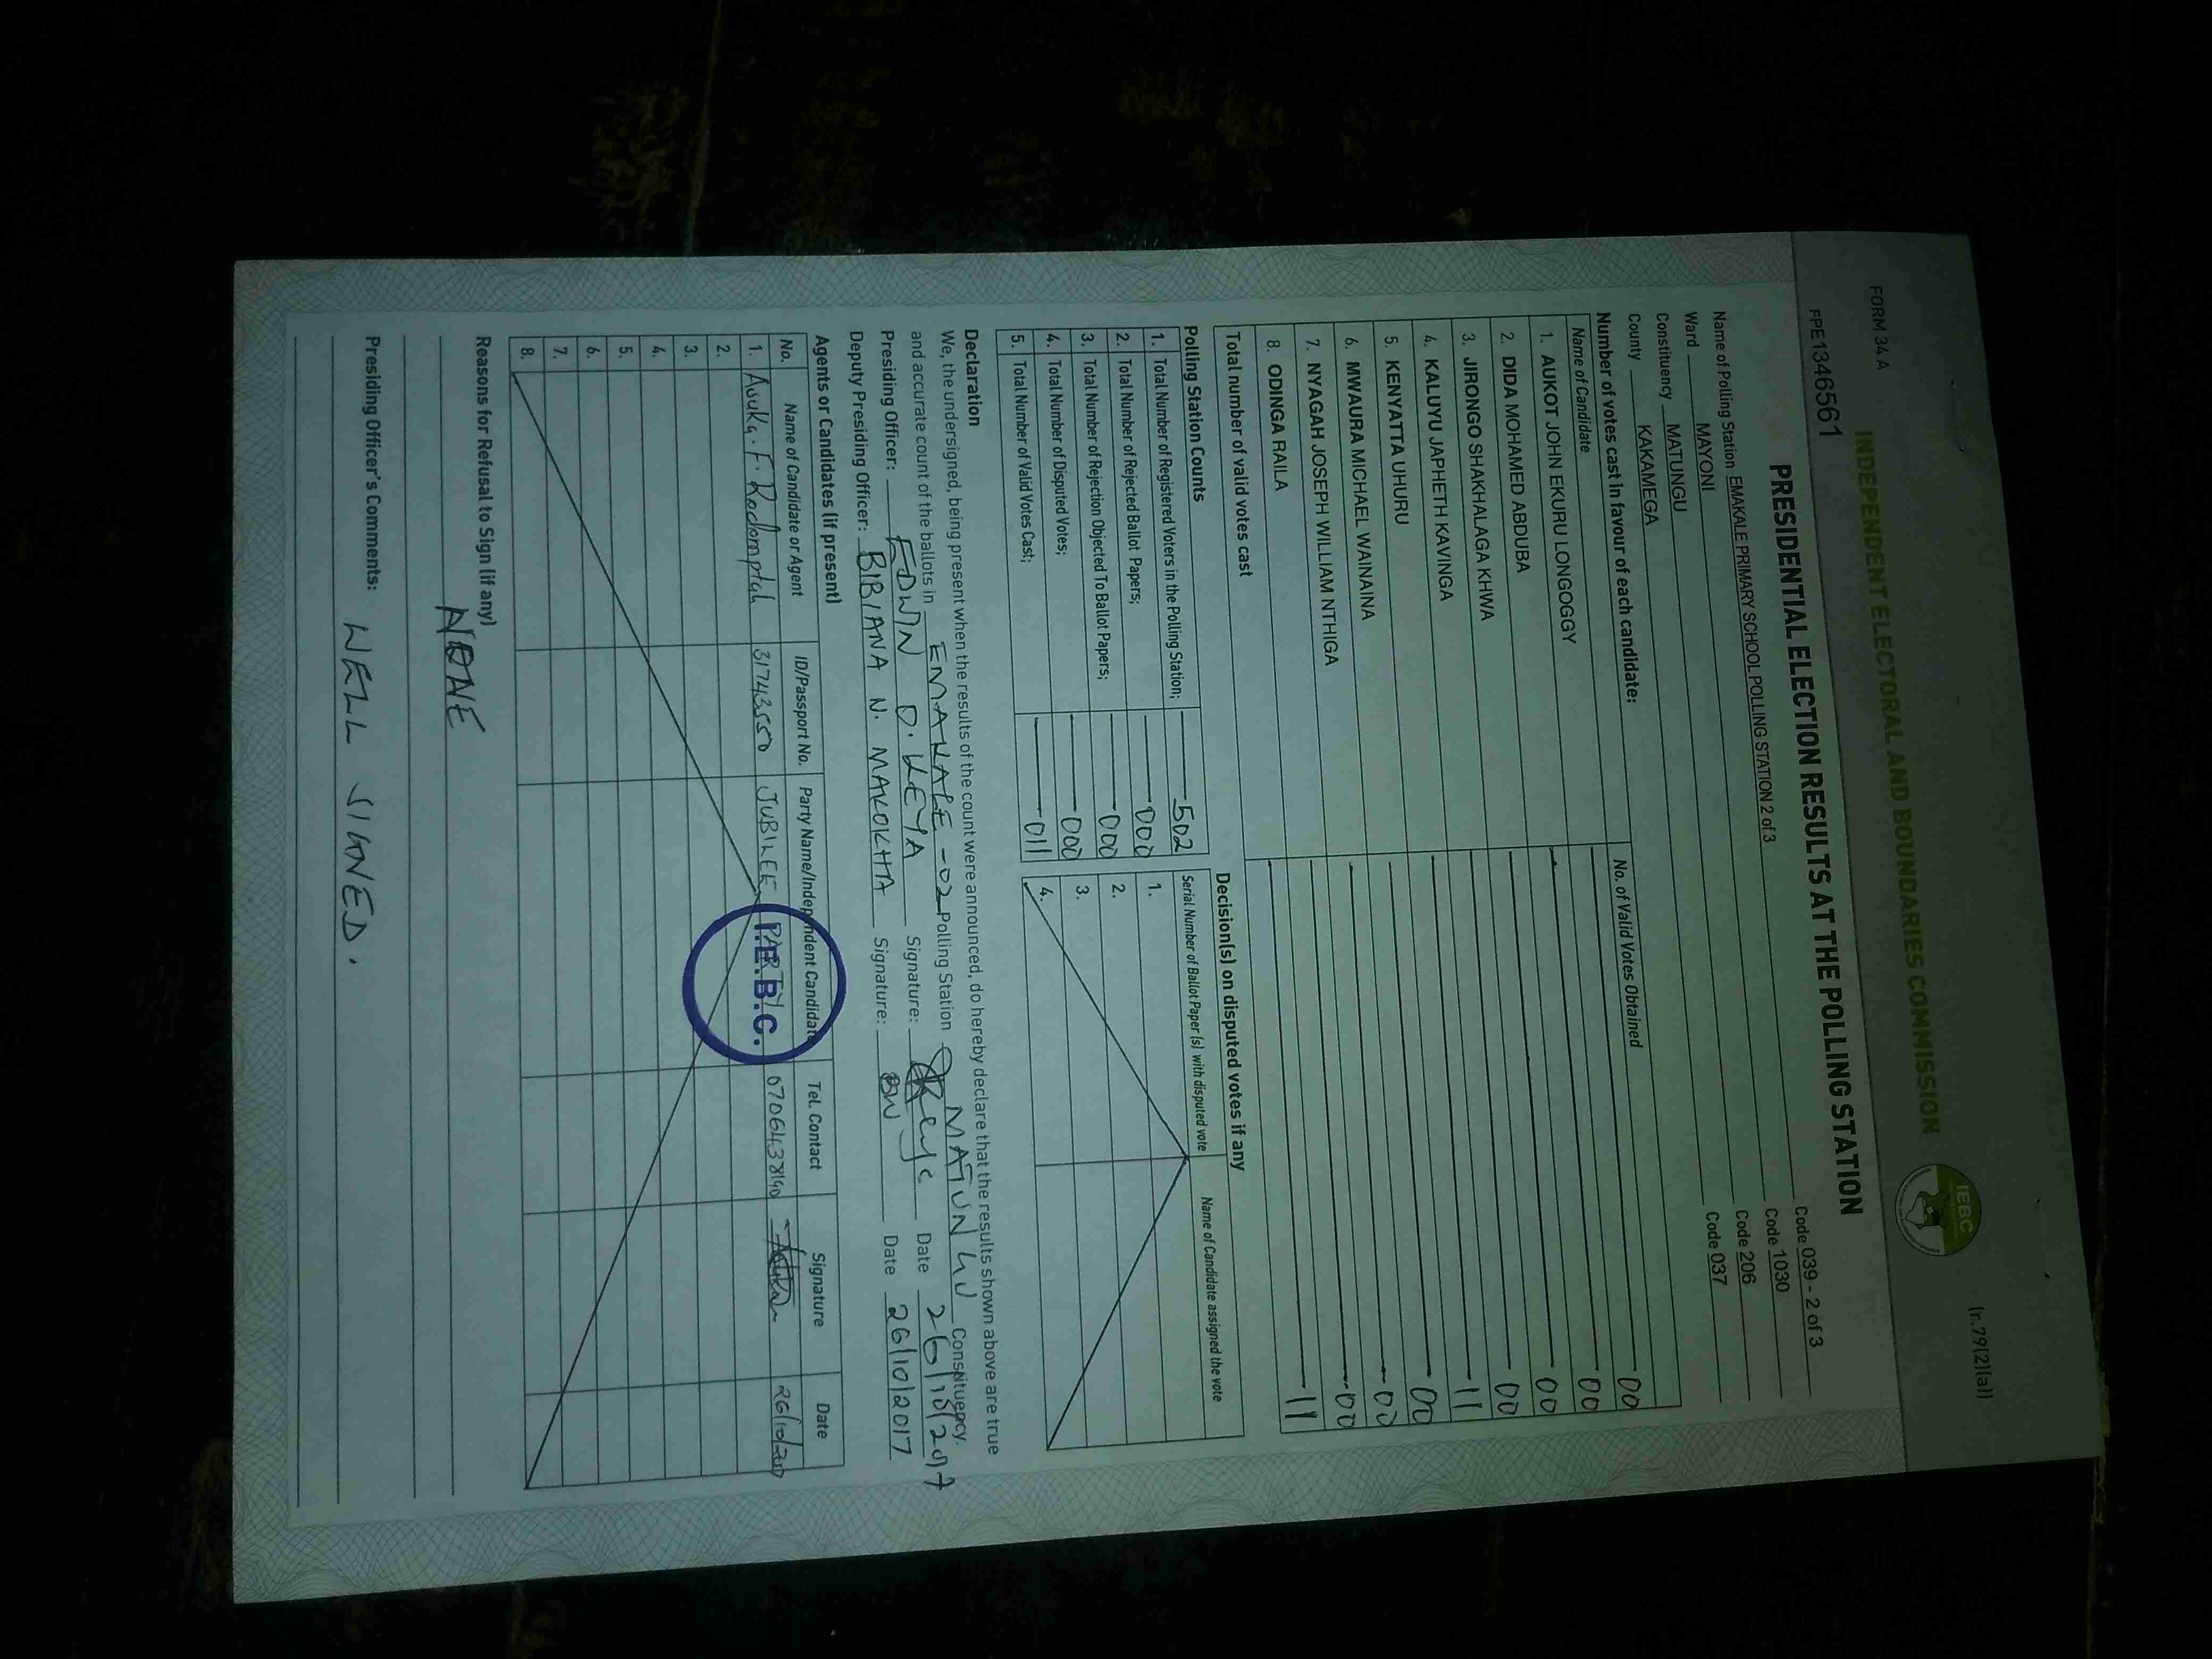 FORM 34 A
(r.79(2)(a))
INDEPENDENT ELECTORAL AND BOUNDARIES COMMISSION
IEBC
FPE1346561
PRESIDENTIAL ELECTION RESULTS AT THE POLLING STATION
Name of Polling Station EMAKALE PRIMARY SCHOOL POLLING STATION 2 of 3 Code 039 - 2 of 3
Ward MAYONI Code 1030
Constituency MATUNGU Code 206
County KAKAMEGA Code 037
Number of votes cast in favour of each candidate:
Name of Candidate No. of Valid Votes Obtained
1. AUKOT JOHN EKURU LONGOGGY 00
2. DIDA MOHAMED ABDUBA 00
3. JIRONGO SHAKHALAGA KHWA 00
4. KALUYU JAPHETH KAVINGA 00
5. KENYATTA UHURU 11
6. MWAURA MICHAEL WAINAINA 00
7. NYAGAH JOSEPH WILLIAM NTHIGA 00
8. ODINGA RAILA 00
Total number of valid votes cast 11
Polling Station Counts
1. Total Number of Registered Voters in the Polling Station; 502
2. Total Number of Rejected Ballot Papers; 000
3. Total Number of Rejection Objected To Ballot Papers; 000
4. Total Number of Disputed Votes; 000
5. Total Number of Valid Votes Cast; 011
Decision(s) on disputed votes if any
Serial Number of Ballot Paper (s) with disputed vote Name of Candidate assigned the vote
1.
2.
3.
4.
Declaration
We, the undersigned, being present when the results of the count were announced, do hereby declare that the results shown above are true
and accurate count of the ballots in EMAKALE -02 Polling Station MATUNGU Constituency.
Presiding Officer: EDWIN O. KEYA Signature: Date 26/10/2017
Deputy Presiding Officer: BIBIANA N. MAKOKHA Signature: Date 26/10/2017
Agents or Candidates (if present)
No. Name of Candidate or Agent ID/Passport No. Party Name/Independent Candidate Tel. Contact Signature Date
1. Asuka. F. Rodomptah 31743550 JUBILEE PARTY. 0706438190 26/10/2017
I.E.B.C.
2.
3.
4.
5.
6.
7.
8.
Reasons for Refusal to Sign (if any)
NONE
Presiding Officer's Comments: WELL SIGNED.